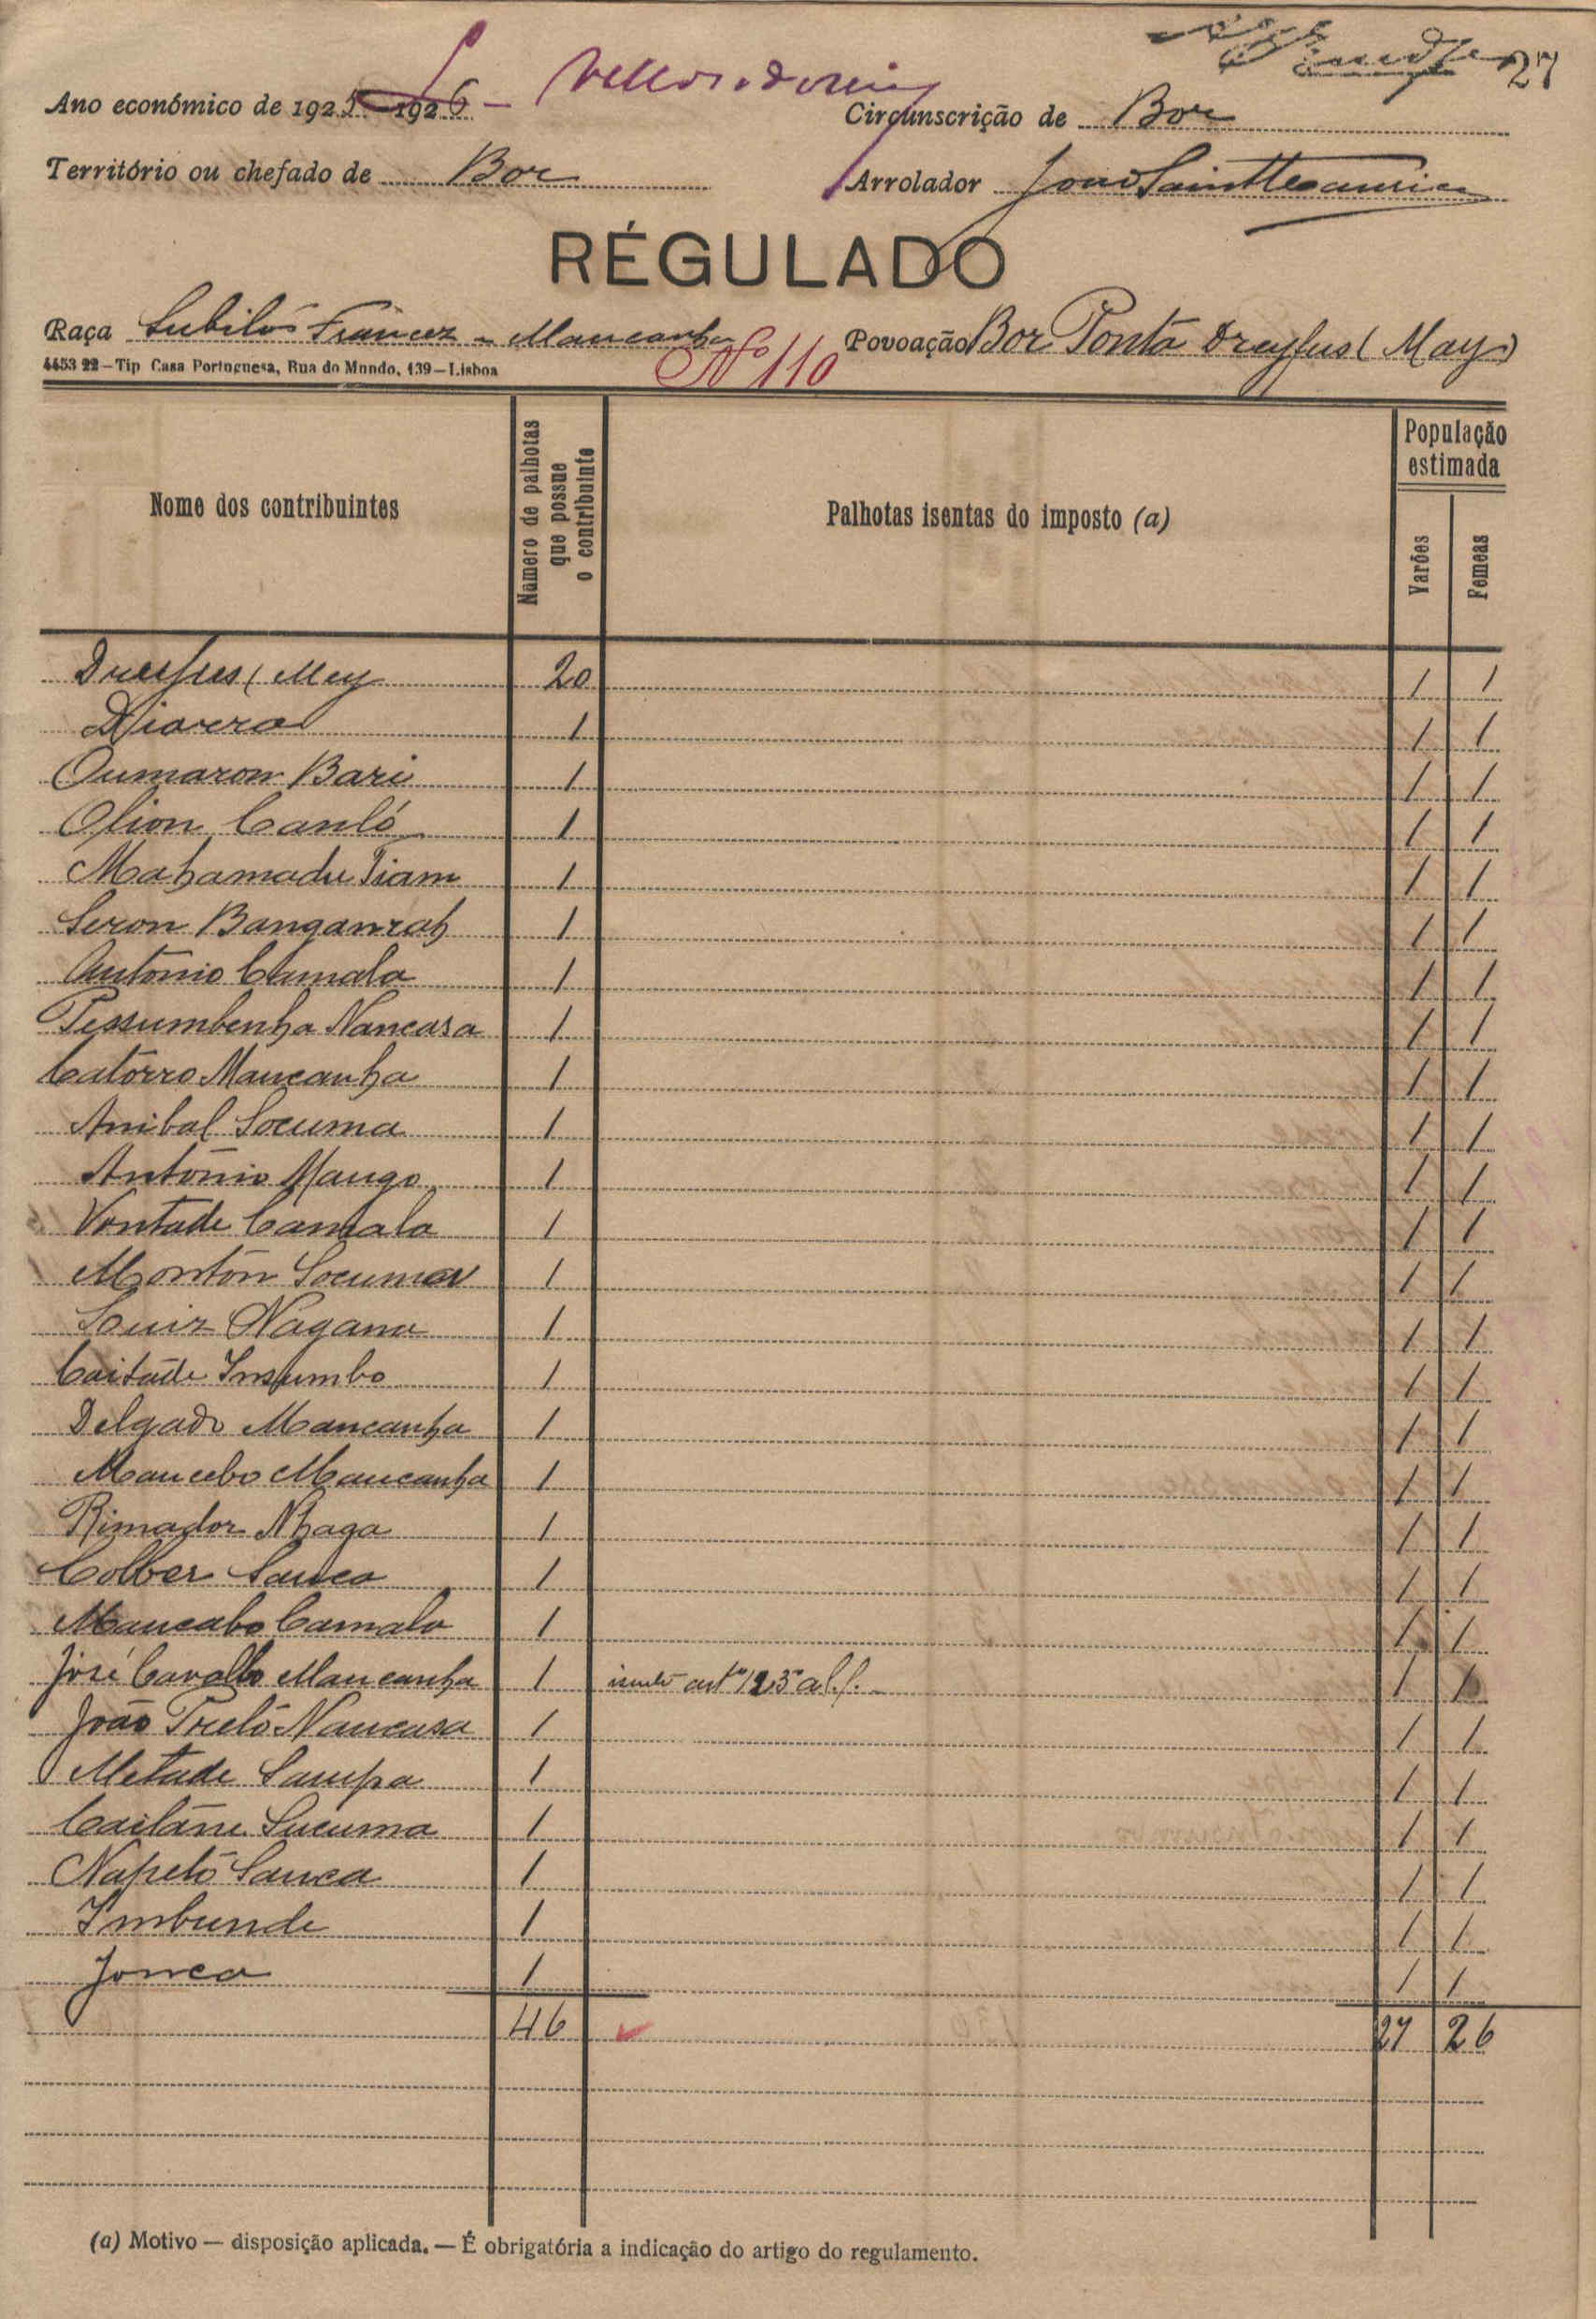 27
Ano económico de 1925-1926
Circunscrição de Bor
Território ou chefado de Bor
Arrolador
RÉGULADO
Raça Francez - Mancanha
Povoação Bor Ponta Dreyfus (May)
4453 22-Tip Casa Portuguesa, Rua do Mundo, 139-Lisboa
Nº 110
Nome dos contribuintes
Número de palhotas que possue o contribuinte
Palhotas isentas do imposto (a)
População estimada
Varões
Femeas
Dreyfus (Mey 20 1 1
Djarra 1 1 1
Oumaron Bari 1 1 1
Olion Canló 1 1 1
Mahamadu Tiam 1 1 1
Seron Banganrah 1 1 1
António Camala 1 1 1
Pessumbenha Nancasa 1 1 1
Catôrro Mancanha 1 1 1
Anibal Socuma 1 1 1
António Mango 1 1 1
Vontade Camala 1 1 1
Montôn Socuma 1 1 1
Luiz Nagana 1 1 1
Caitade Insumbo 1 1 1
Delgado Mancanha 1 1 1
Mancebo Mancanha 1 1 1
Rimador Nhaga 1 1 1
Colber Sanca 1 1 1
Mancabo Camala 1 1 1
José Cavallo Mancanha 1 art. 123º al. f. 1
João Treló Nancasa 1 1 1
Metade Sampa 1 1 1
Caitáne Sucuma 1 1 1
Napeló Sanca 1 1 1
Imbunde 1 1 1
Jonca 1 1 1
46 27 26
(a) Motivo — disposição aplicada. — É obrigatória a indicação do artigo do regulamento.